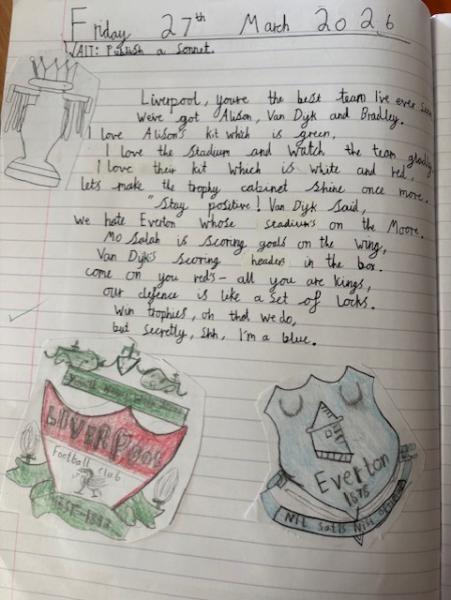 Friday 27th March 2026
ALT: Publish a Sonnet.
Liverpool, youre the best team I've ever seen
We've got Alison, Van Dijk and Bradley.
I love Alison's kit which is green,
I love the Stadium and watch the team gladly
I love their kit which is white and red,
Lets make the trophy cabinet shine once more.
"Stay positive! Van Dijk said,
we hate Everton whose stadium's on the Moore.
Mo Salah is scoring goals on the wing,
Van Dijk's scoring headers in the box.
come on you red's - all you are kings,
our defence is like a set of locks.
win trophies, oh that we do,
but secretly, shh, I'm a blue.
LIVERPOOL
Football club
EST-1892
Everton
1878
NIL Satis Nisi